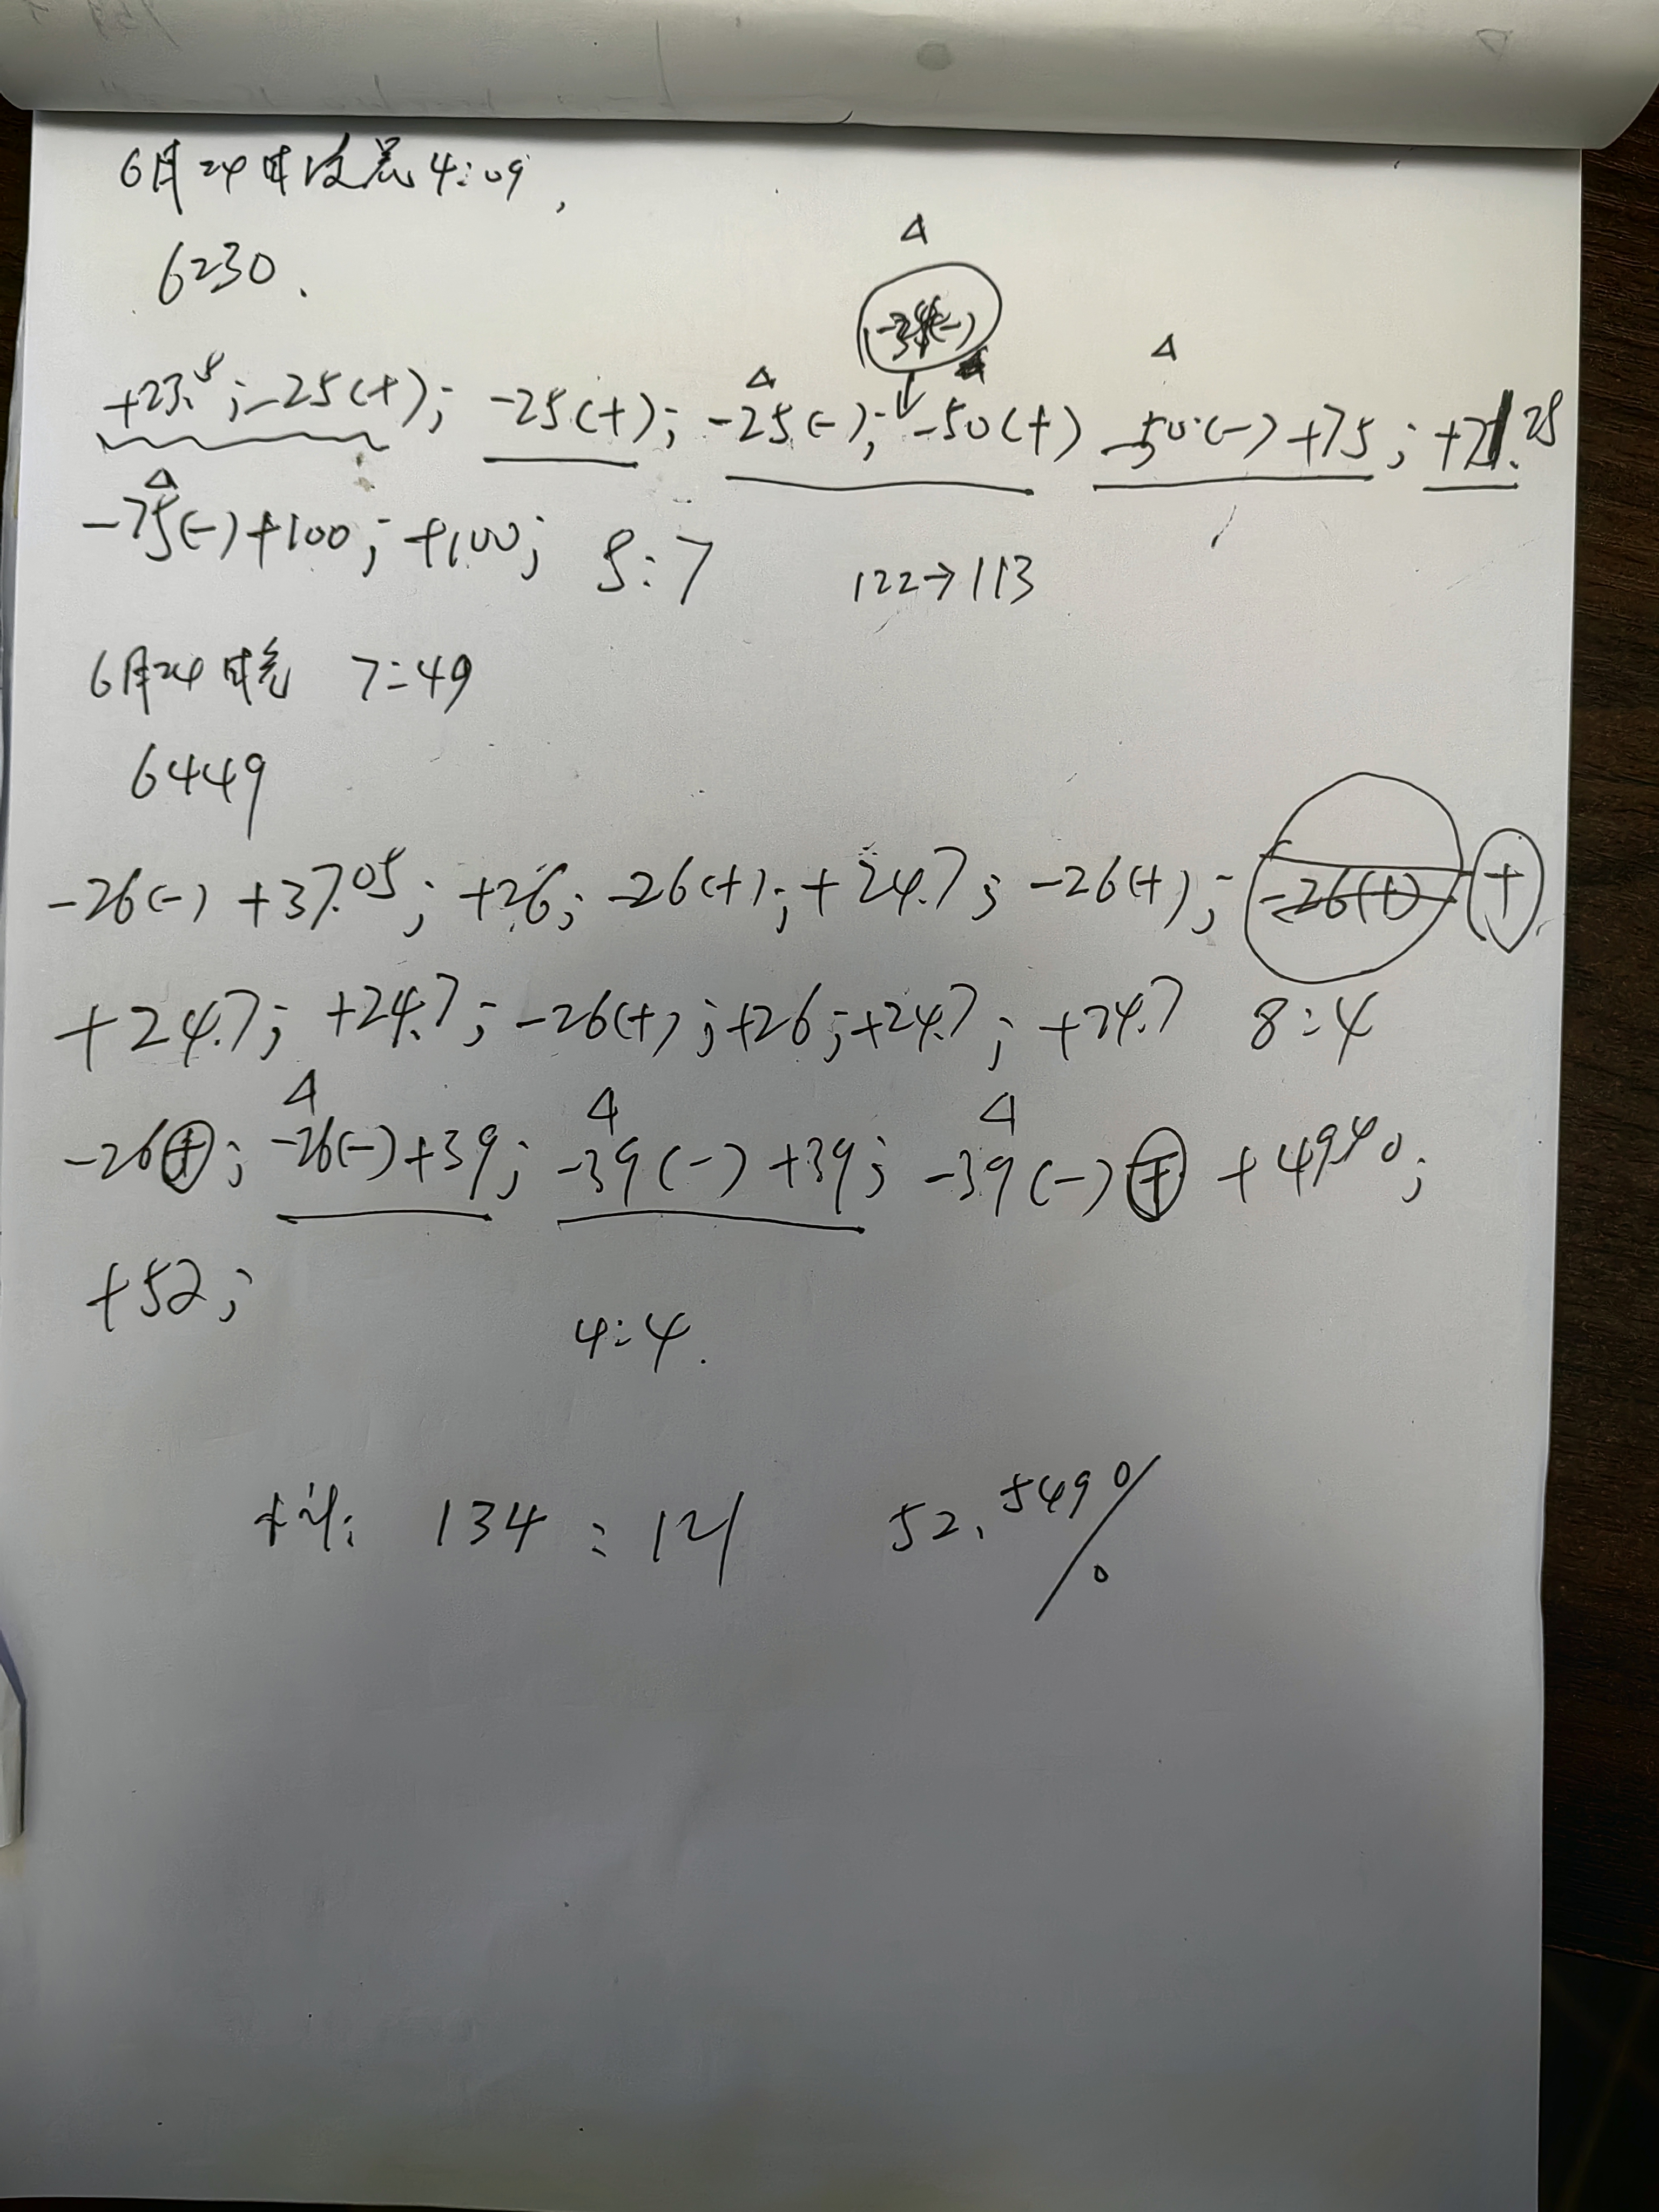 6月24日凌晨4:09,
6230.
△
-34(-)
△ △
+23.5; -25(+); -25(+); -25(-); -50(+) -50(-) +75; +71.25
△
-75(-)+100; +100; 8:7 122→113
6月24日晚 7:49
6449
-26(-) +37.05; +26; -26(+); +24.7; -26(+); -26(+) +
+24.7; +24.7; -26(+); +26; +24.7; +24.7 8:4
△ △ △
-26(+); -26(-)+39; -39(-)+39; -39(-)(+) +49.40;
+52;
4:4.
134:121 52.549%